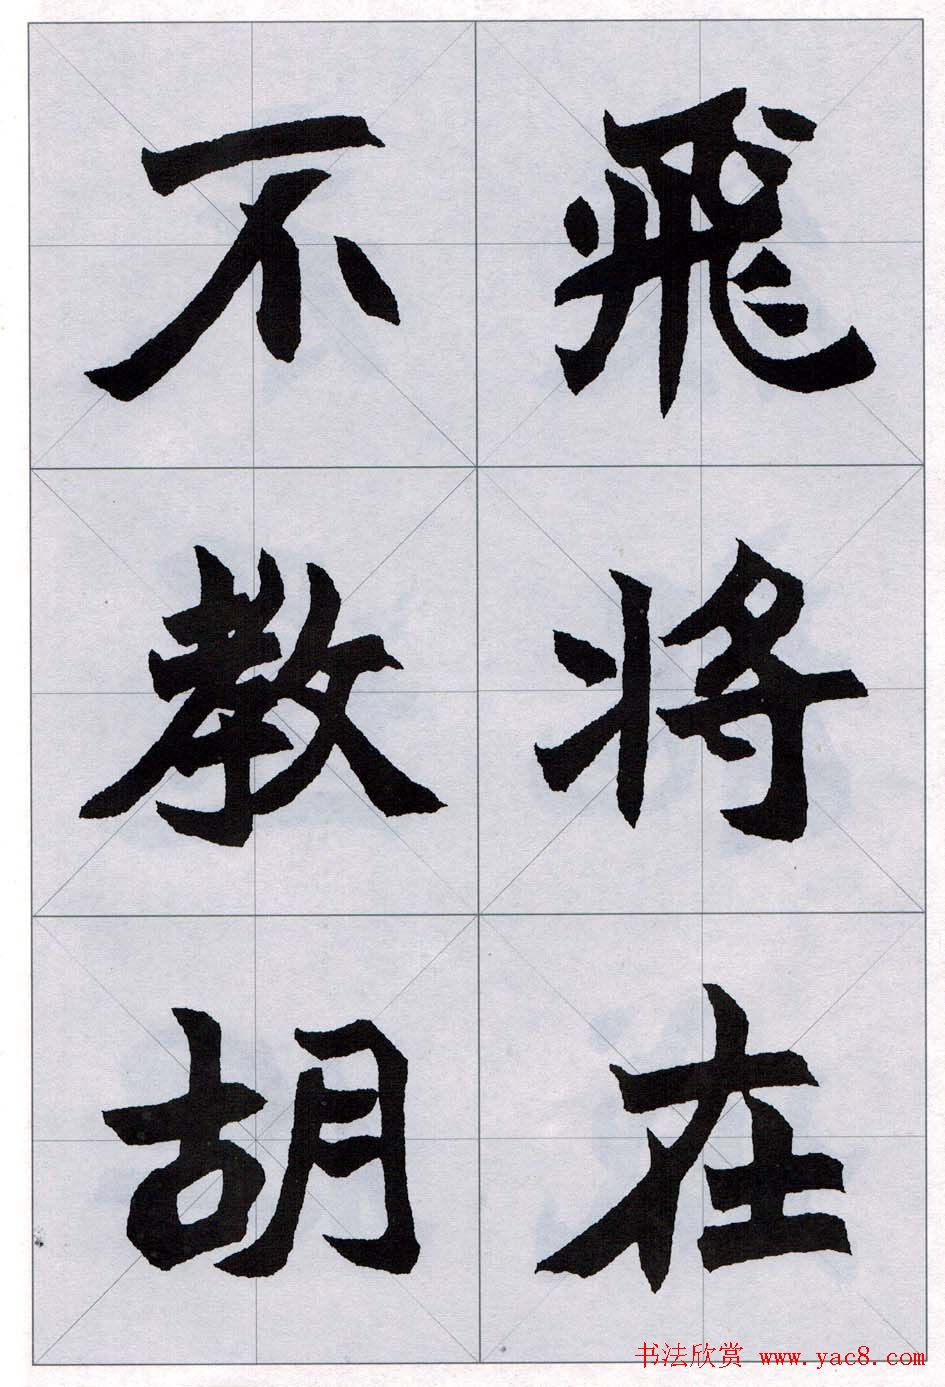 飛將在
不教胡
书法欣赏 www.yac8.com